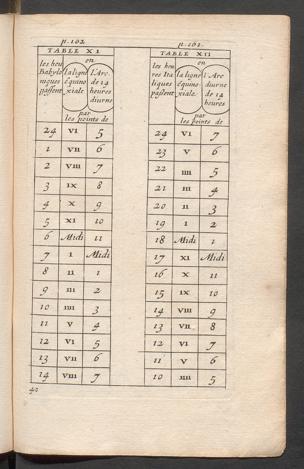 p. 162.
TABLE XI
les heu Babylo niques passent
en
la ligne équino xiale
l'Arc de 14 heures diurne
par
les points de
24 VI 5
1 VII 6
2 VIII 7
3 IX 8
4 X 9
5 XI 10
6 Midi 11
7 I Midi
8 II 1
9 III 2
10 IIII 3
11 V 4
12 VI 5
13 VII 6
14 VIII 7
42
p. 161.
TABLE XII
les heu res Ita liques passent
en
la ligne équino xiale
l'Arc diurne de 14 heures
par
les points de
24 VI 7
23 V 6
22 IIII 5
21 III 4
20 II 3
19 I 2
18 Midi 1
17 XI Midi
16 X 11
15 IX 10
14 VIII 9
13 VII 8
12 VI 7
11 V 6
10 IIII 5